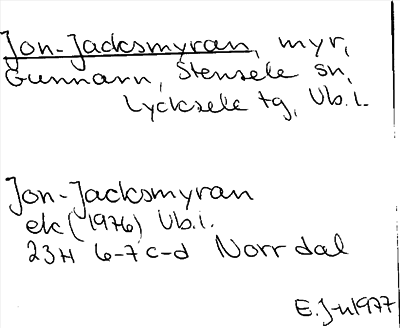 Jon-Jacksmyran, myr,
Gunnarn, Stensele sn,
Lycksele tg, Vb.l.
Jon-Jacksmyran
ek (1976) Vb.l.
23H 6-7 c-d Norrdal
E.J-n 1977